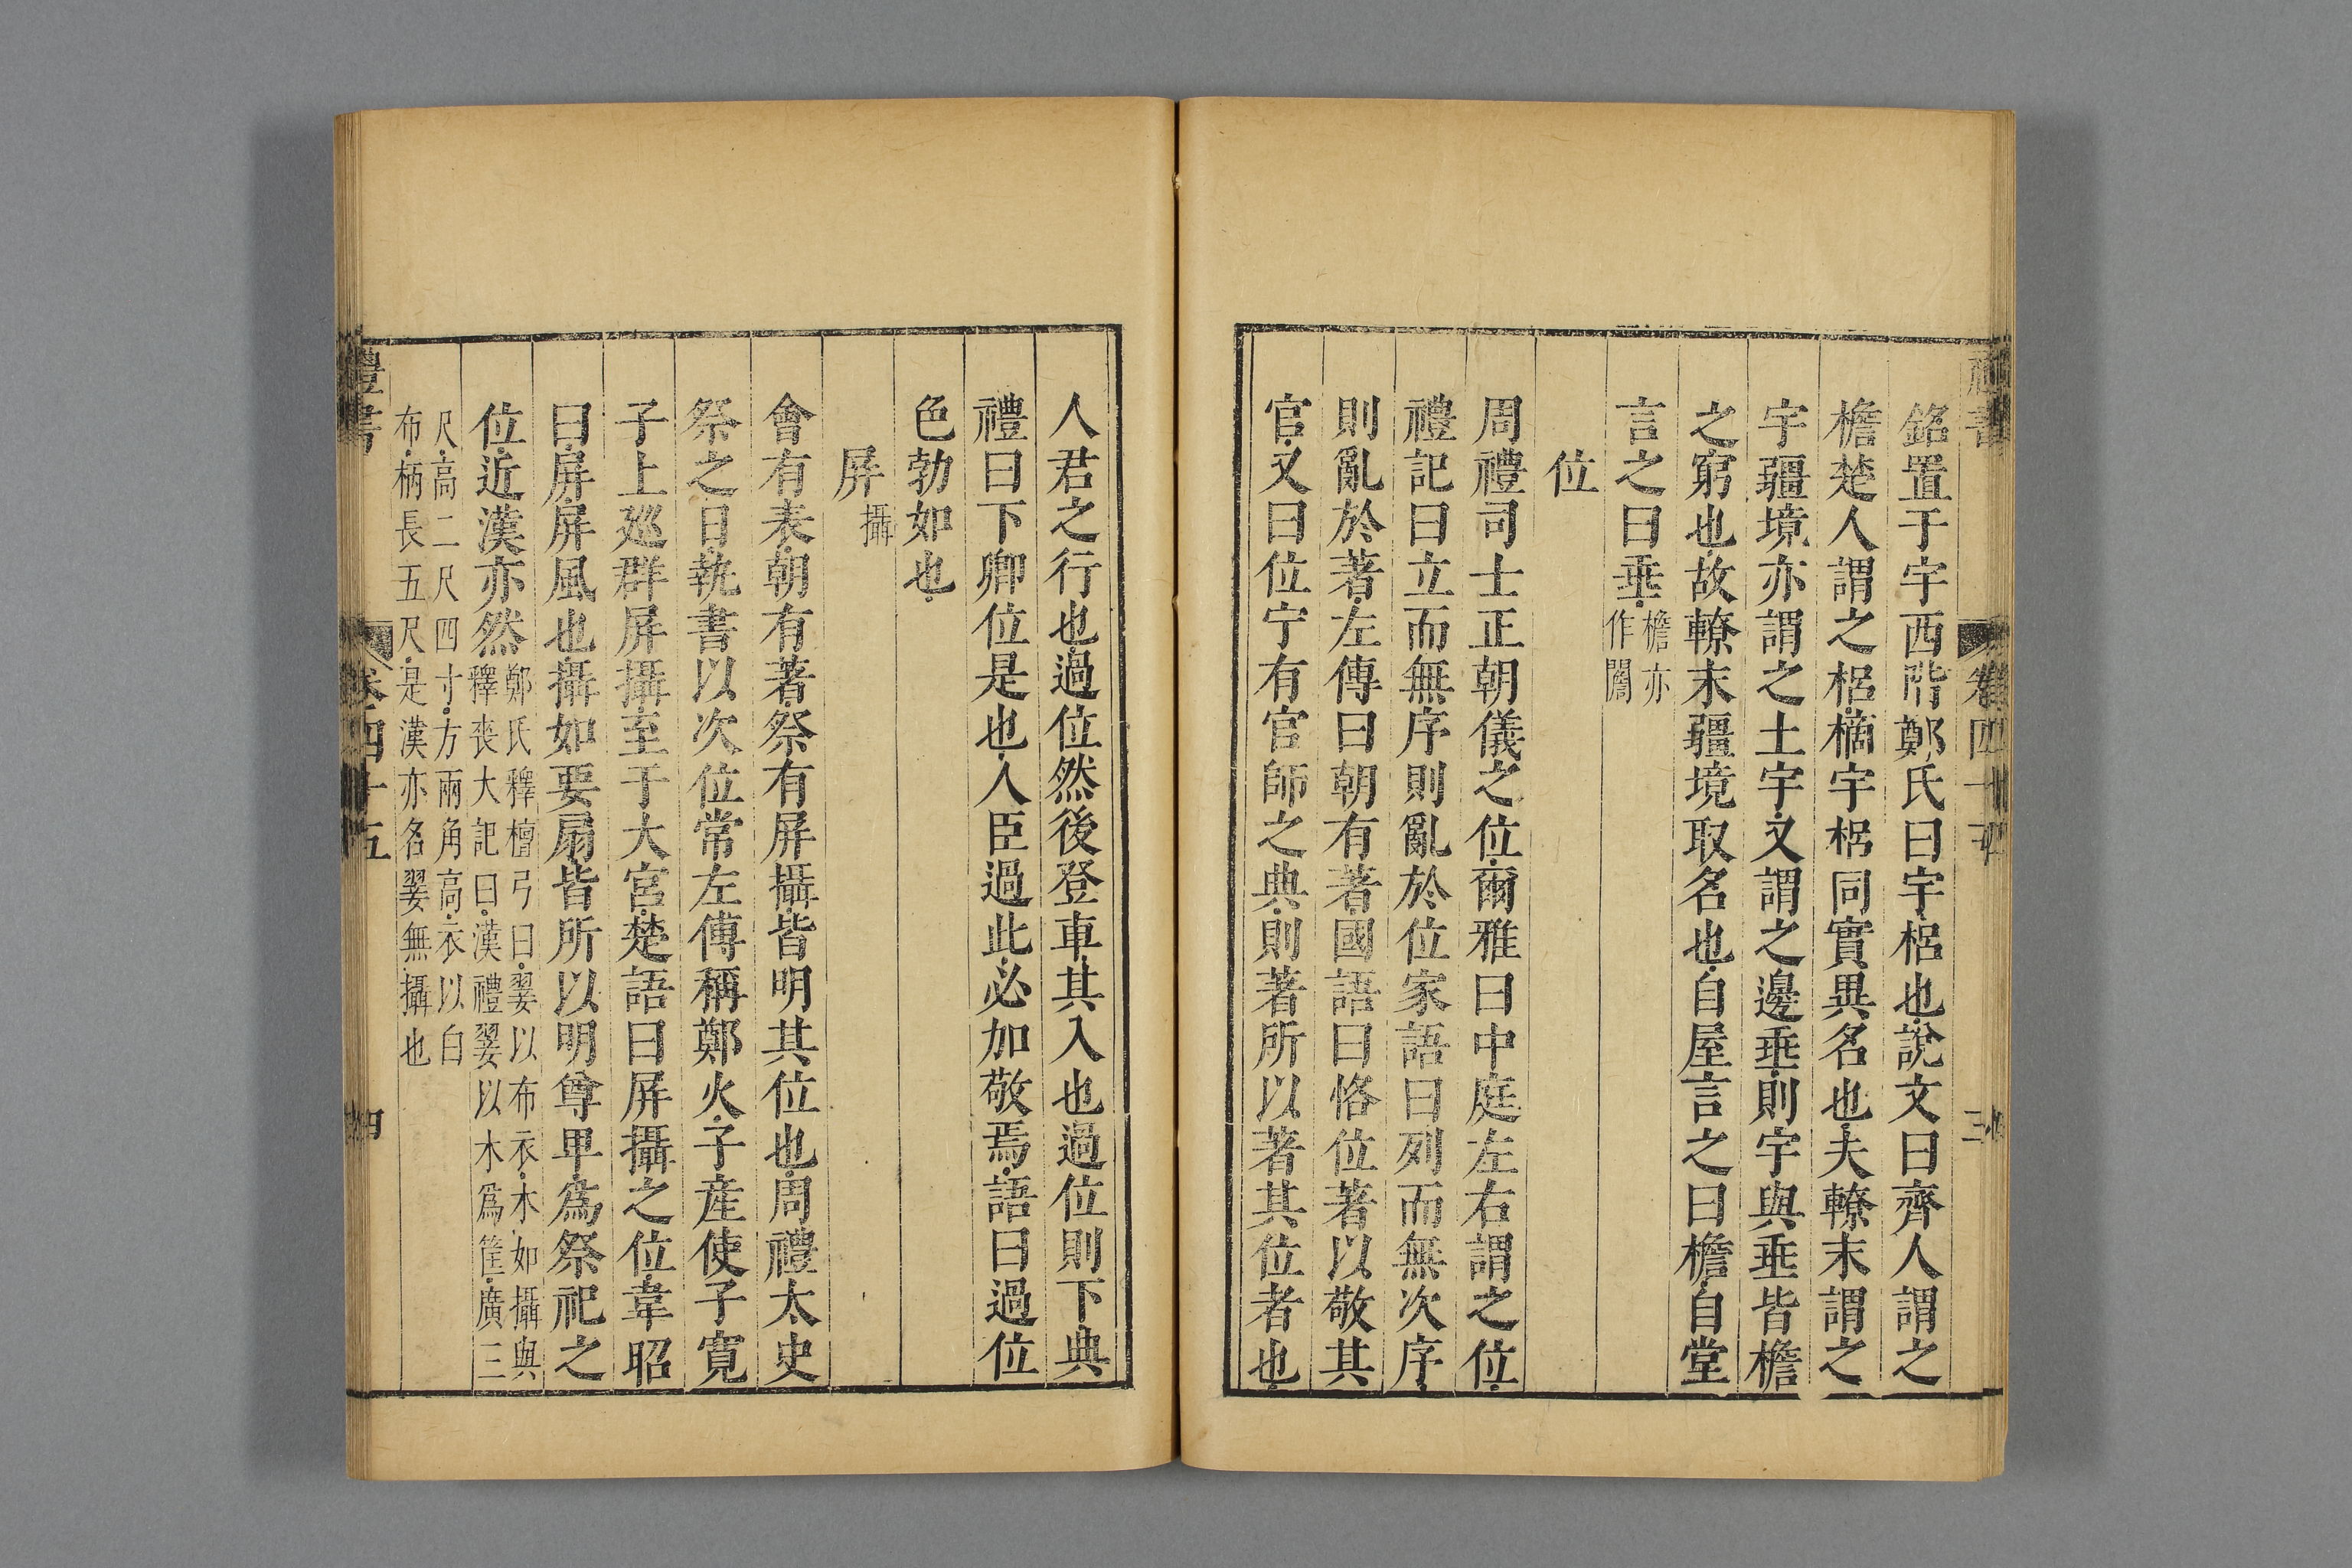 銘置于宇西階鄭氏曰宇梠也說文曰齊人謂之
檐楚人謂之梠樀宇梠同實異名也夫轑末謂之
宇疆境亦謂之土宇又謂之邊垂則宇與垂皆檐
之窮也故轑末疆境取名也自屋言之曰檐自堂
言之曰垂檐亦作閻
位
周禮司士正朝儀之位爾雅曰中庭左右謂之位
禮記曰立而無序則亂於位家語曰列而無次序
則亂於著左傳曰朝有著國語曰恪位著以敬其
官又曰位宁有官師之典則著所以著其位者也
人君之行也過位然後登車其入也過位則下典
禮曰下卿位是也人臣過此必加敬焉語曰過位
色勃如也
屏攝
會有表朝有著祭有屏攝皆明其位也周禮太史
祭之日執書以次位常左傳稱鄭火子產使子寬
子上巡群屏攝至于大宮楚語曰屏攝之位韋昭
曰屏屏風也攝如要扇皆所以明尊卑為祭祀之
位近漢亦然鄭氏釋檀弓曰翣以布衣木如攝與
釋喪大記曰漢禮翣以木爲筐廣三
尺高二尺四寸方兩角高衣以白
布柄長五尺是漢亦名翣無攝也
禮書
卷四十五
四